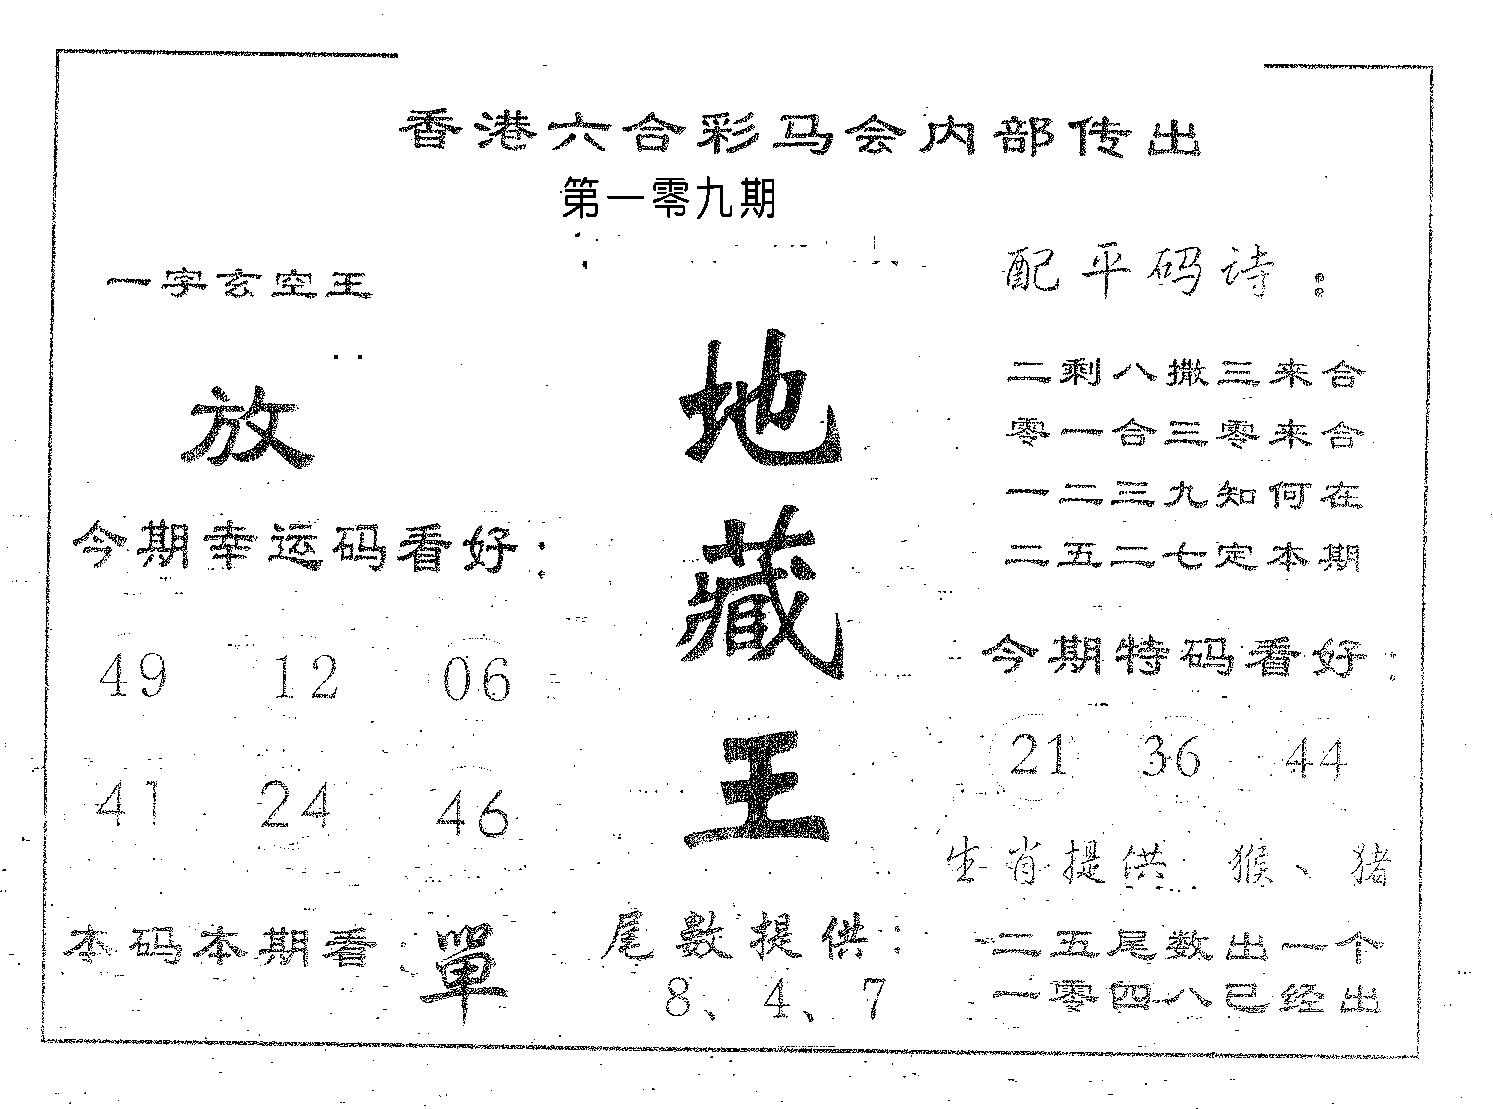 香港六合彩马会内部传出
第一零九期
一字玄空王
放
今期幸运码看好：
49 12 06
41 24 46
本码本期看：單
地
藏
王
尾數提供：
8、4、7
配平码诗：
二剩八撒三来合
零一合三零来合
一二三九知何在
二五二七定本期
今期特码看好：
21 36 44
生肖提供 猴、猪
二五尾数出一个
一零四八已经出